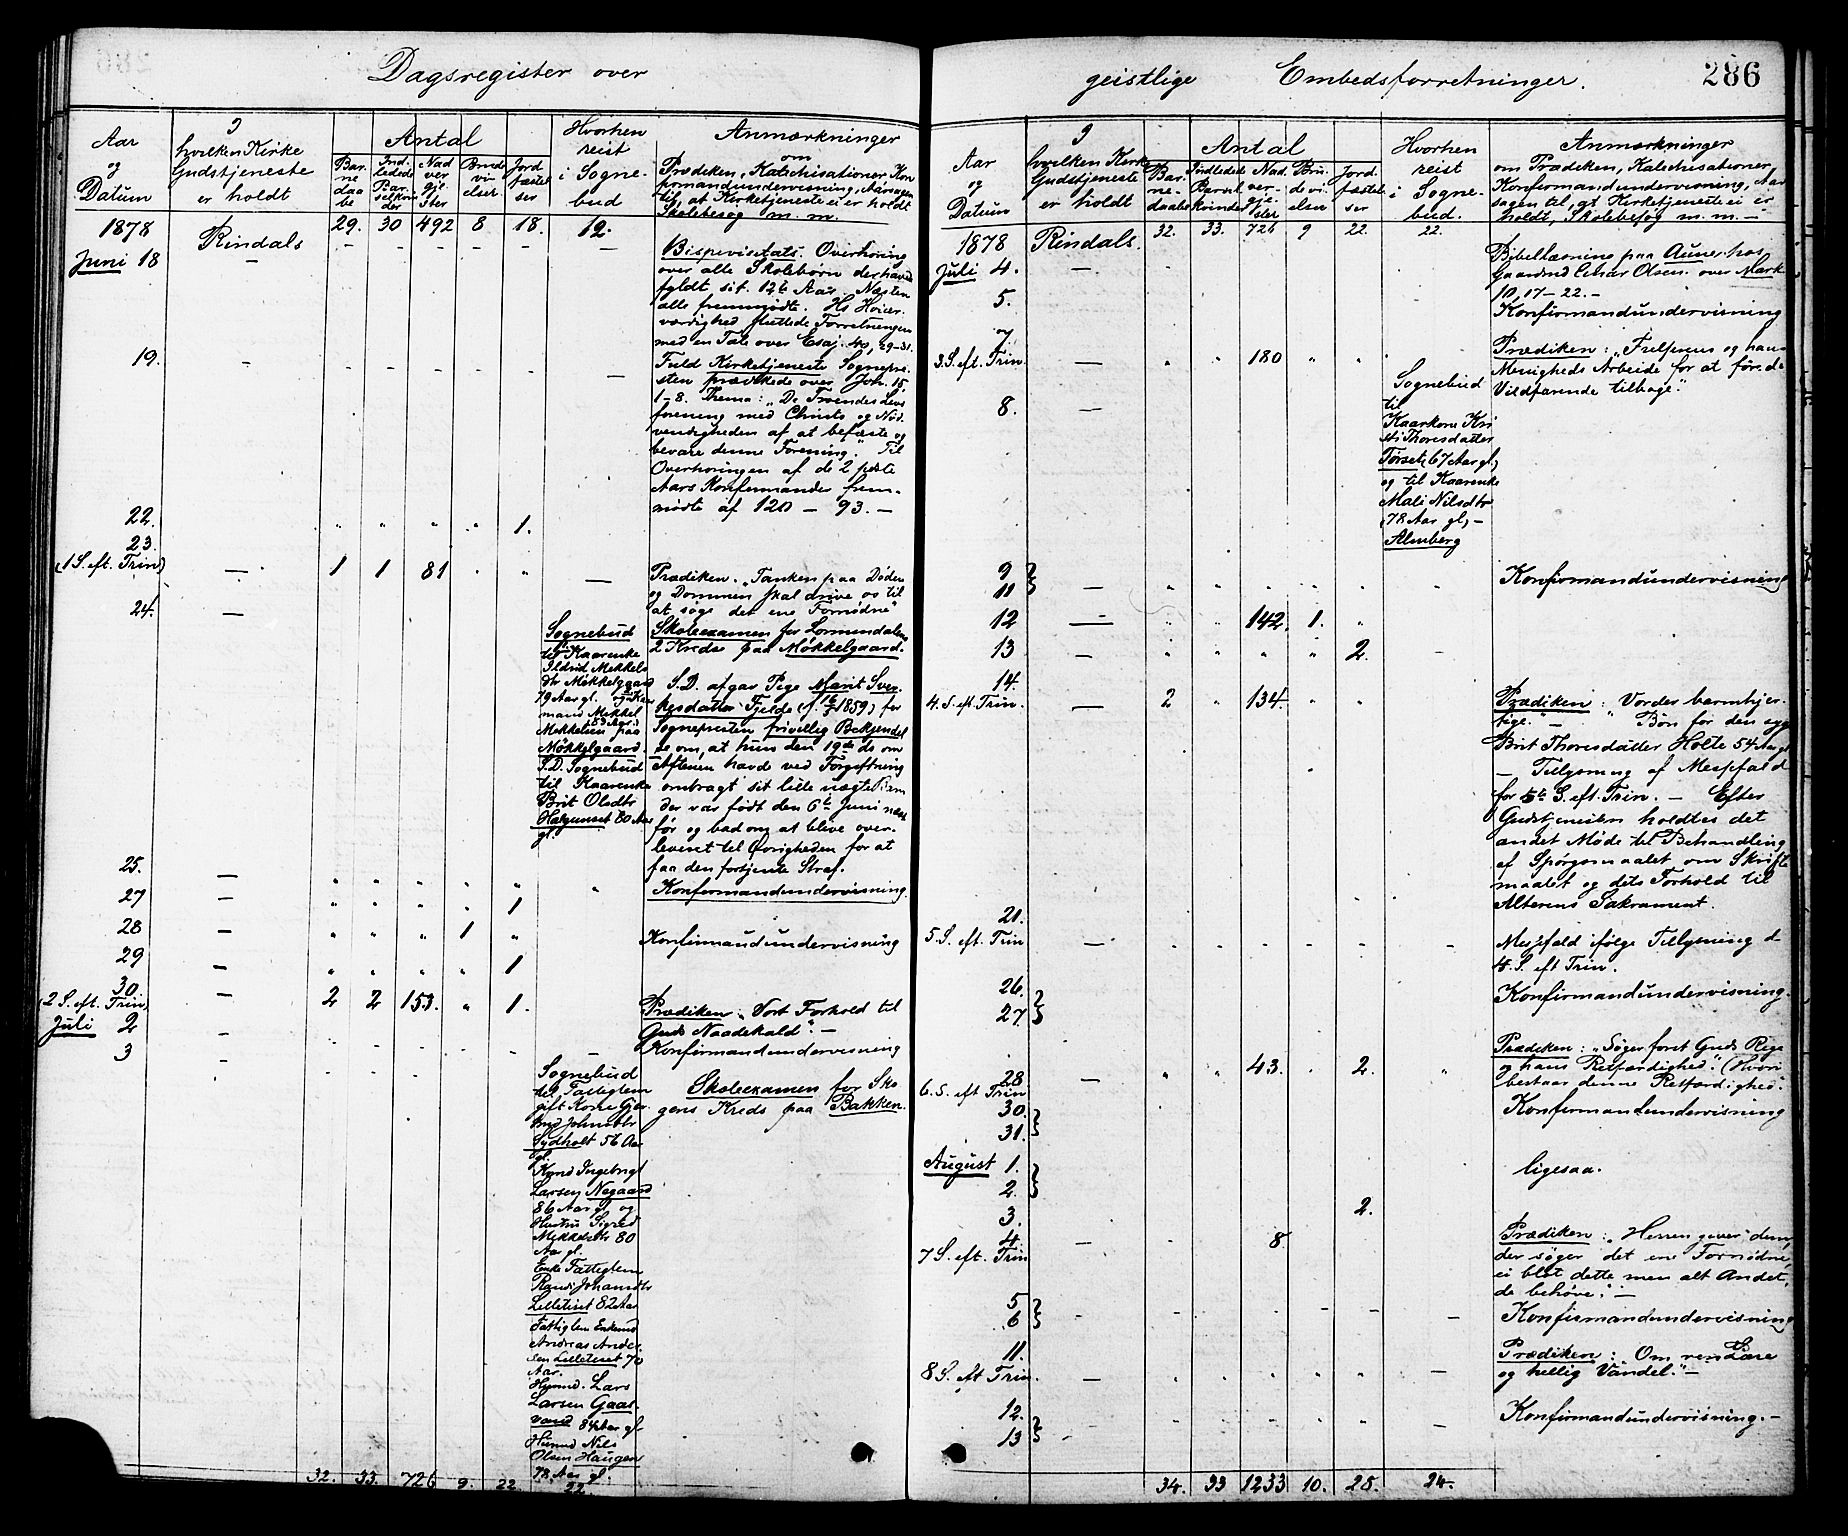 Dagsregister over
Aar
og
Datum
I
hvilken Kirke
Gudstjeneste
er holdt
Antal
Bar-
ne
daa
be
Ind-
ledede
Bar-
selkvin
der
Nad
ver
gje
ster
Brude
vi
elser
Jord
fæstel
ser
Hvorhen
reist
i Sogne-
bud
Anmærkninger
om
Prædiken, Katechisationer Kon
firmandundervisning, Aarsagen
til, at Kirketjeneste ei er holdt
Skolebesøg m. m.
1878 Rindals 29. 30 492 8 18. 12.
Juni 18 —
Bispevisitats. Overhøring
over alle Skolebørn der havde
fyldt sit 12te Aar. Næsten
alle fremmødte. Hs Høiær-
værdighed sluttede Forretningen
med en Tale over Esaj. 40, 29-31.
19. —
Fuld Kirketjeneste Sognepre-
sten prædikede over Joh. 15,
1-8. Thema: „De Troendes Livs
forening med Christo og Nød-
vendigheden af at befæste og
bevare denne Forening." Til
Overhøringen af de 2 sidste
Aars Konfirmander frem-
mødte af 120 — 93. —
22. 1.
23.
(1 S. eft. Trin) — 1 1 81 —
Prædiken. „Tanken paa Døden
og Dommen skal drive os til
at søge det ene Fornødne"
24. —
Sognebud
til Kaarenke
Ildrid Mekkels
dtr Møkkelgaard
79 Aar gl. og Kaar
mand Mekkel
Mekkelsen 83 Aar paa
Møkkelgaard.
S.D. Sognebud
til Kaarenke
Brit Olsdtr
Helgumset 80 Aar
gl.
Skoleexamen for Lomundalens
2 Kreds paa Møkkelgaard.
S.D. afgav Pige Marit Sver-
kesdatter Fjelde (f. 1859) for
Sognepresten frivillig Bekjendel
se om, at hun den 19de ds om
Aftenen havde ved Forgiftning
ombragt sit lille uægte Barn
der var født den 6te Juni næst
før og bad om at blive over-
leveret til Øvrigheden for at
faa den fortjente Straf.
25. —
Konfirmandundervisning.
27 — 1
28 — 1
Konfirmandundervisning
29 — 1
30.
(2 S. eft. Trin) — 2 2 153. 1.
Prædiken „Vort Forhold til
Guds Naadekald". —
Juli 2 —
Konfirmandundervisning
3 —
Sognebud
til Fattiglem
gift Kone Gjer
trud Johnsdtr
Sydholt 56 Aar
gl.
Kmd Ingebrigt
Larsen Negaard
86 Aar gl. og
Hustru Sigrid
Mekkelsdtr 80
Aar gl.
Enke Fattiglem
Randi Johansdtr
Lilletiset 82 Aar
Fattiglem Enkemd
Andreas Ander
sen Lilleteset 70
Aar.
Husmd. Lars
Larsen Gaas
vand 84 Aar gl
Husmd Nils
Olsen Haugen
78. Aar gl.
Skoleexamen for Sko
gens Kreds paa Bakken.
32. 33. 726 9. 22. 22.
geistlige Embedsforretninger.
286
Aar
og
Datum
I
hvilken Kirke
Gudstjeneste
er holdt
Antal
Bar-
ne-
daabe
Indledede
Barsel
kvinder
Nad.
ver-
gje
ster
Bru-
de vi-
elser
Jord
fæstel
ser
Hvorhen
reist
i Sogne-
bud.
Anmærkninger
om Prædiken, Katechisationer,
Konfirmandundervisning, Aar
sagen til, at Kirketjeneste ei er
holdt, Skolebesøg m. m. —
1878 Rindals. 32. 33. 726 9 22. 22.
Juli 4. —
Bibellæsning paa Aune hos
Gaardmd Einar Olsen over Mark
10, 17-22. —
5.
Konfirmandundervisning
7
3 S. eft. Trin. — 180
Prædiken: „Frelseren og hans
Menigheds Arbeide for at føre de
Vildfarende tilbage."
8. —
Sognebud
til
Kaarkone Kri
sti Thoresdatter
Tørset (67 Aar gl.)
og til Kaarenke
Mali Nilsdtr
(78 Aar gl) —
Almberg
9
11 —
Konfirmandundervisning
12 — 142. 1.
13 — 2.
14.
4. S. eft. Trin. — 2 134.
Prædiken: „Vorder barmhjer-
tige." — Bøn for den syge
Brit Thoresdatter Holte 54 Aar gl
— Tillysning af Messefald
for 5te S. eft. Trin. — Efter
Gudstjenesten holdtes det
andet Møde til Behandling
af Spørgsmaalet om Skrifte
maalet og dets Forhold til
Alterens Sakrament.
21.
5. S. eft. Trin —
Messefald ifølge Tillysning d
4. S. eft Trin.
26.
27.
Konfirmandundervisning.
28
6. S. eft Trin — 43. 2.
Prædiken: „Søger først Guds Rige
og hans Retfærdighed." (Hvori
bestaar denne Retfærdighed.
30.
31.
Konfirmandundervisning
August 1.
2.
ligesaa.
3. 2.
4.
7 S. eft. Trin — 8
Prædiken: „Herren giver dem,
der søger det ene Fornødne,
ei blot dette men alt Andet,
de behøve." —
5
6. —
Konfirmandundervisning
11.
8 S. eft Trin. —
Prædiken: „Om ren Lære
og hellig Vandel." —
12.
13
Konfirmandundervisning. —
34. 33 1233 10. 28. 24.